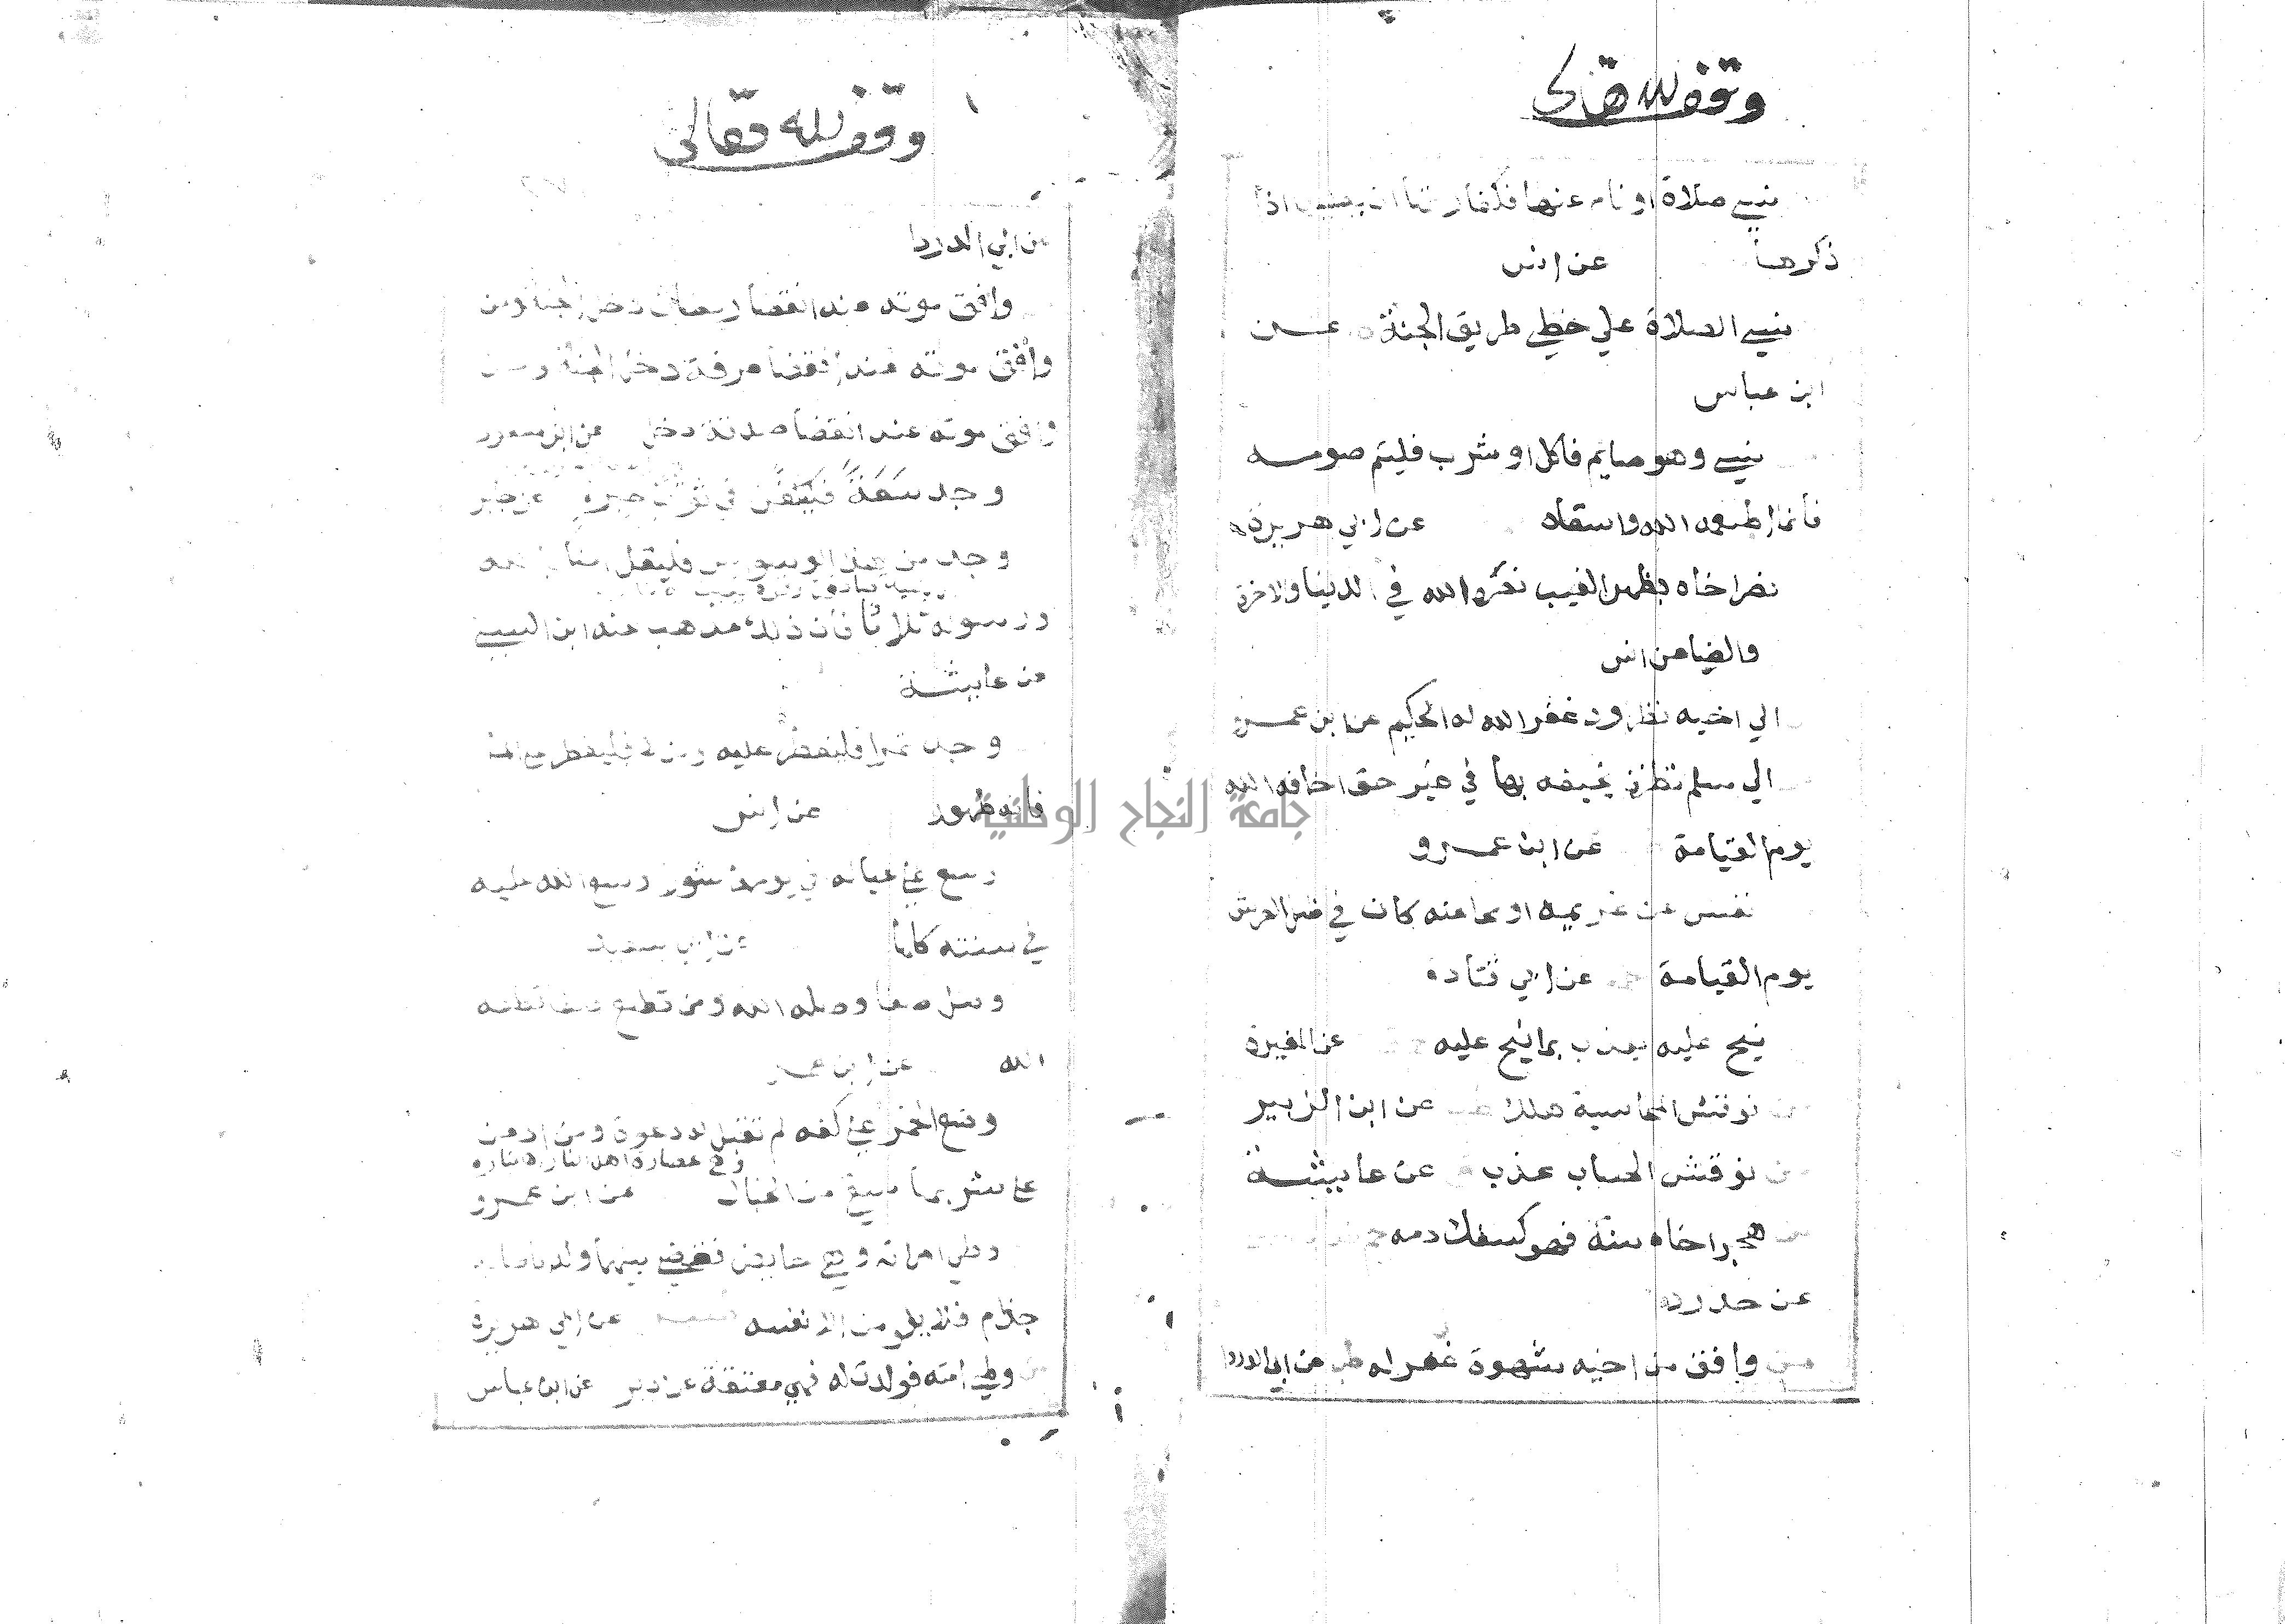 وقف لله تعالى
نسي صلاة او نام عنها فكفارتها ان يصليها اذا
ذكرها عن انس
نسي الصلاة علي خطي طريق الجنة عن
ابن عباس
نسي وهو صايم فاكل او شرب فليتم صومه
فانما اطعمه الله واسقاه عن ابي هريرة
نصر اخاه بظهر الغيب نصره الله في الدنيا والاخرة
والضيا عن انس
الي اخيه نظر ود غفر الله له الحكيم عن ابن عمرو
الي مسلم نظرة يخيفه بها في غير حق اخافه الله
يوم القيامة عن ابن عمرو
نفس عن غريمه او محا عنه كان في ظل العرش
يوم القيامة عن ابي قتادة
نيح عليه يعذب بما نيح عليه عن المغيرة
من نوقش المحاسبة هلك طب عن ابن الزبير
من نوقش الحساب عذب ق عن عايشة
من هجر اخاه سنة فهو كسفك دمه
عن حدرد
من وافق من اخيه شهوة غفر له طب عن ابي الدردا
وقف لله تعالى
عن ابي الدردا
وافق موته عند انقضا رمضان دخل الجنة ومن
وافق موته عند انقضا عرفة دخل الجنة ومن
وافق موته عند انقضا صدقة دخل عن ابن مسعود
وجد سعة فليكفن في ثوب حبرة عن جابر
وجد من هذا الوسواس فليقل امنا بالله
ورسوله ثلاثا فان ذلك يذهب عنه ابن السني
عن عايشة
وجد تمرا فليفطر عليه ومن لا فليفطر علي الما
فانه طهور عن انس
وسع علي عياله في يوم عاشورا وسع الله عليه
في سنته كلها عن ابي سعيد
وصل صفا وصله الله ومن قطع صفا قطعه
الله عن ابن عمر
وضع الخمر علي كفه لم تقبل له دعوة ومن ادمن
وهي عصارة اهل النار
علي شربها سقي من الخبال عن ابن عمرو
وطي امراته وهي حايض فقضي بينهما ولد فاصابه
جذام فلا يلومن الا نفسه عن ابي هريرة
من وطي امته فولدت له فهي معتقة عن دبر عن ابن عباس
جامعة النجاح الوطنية